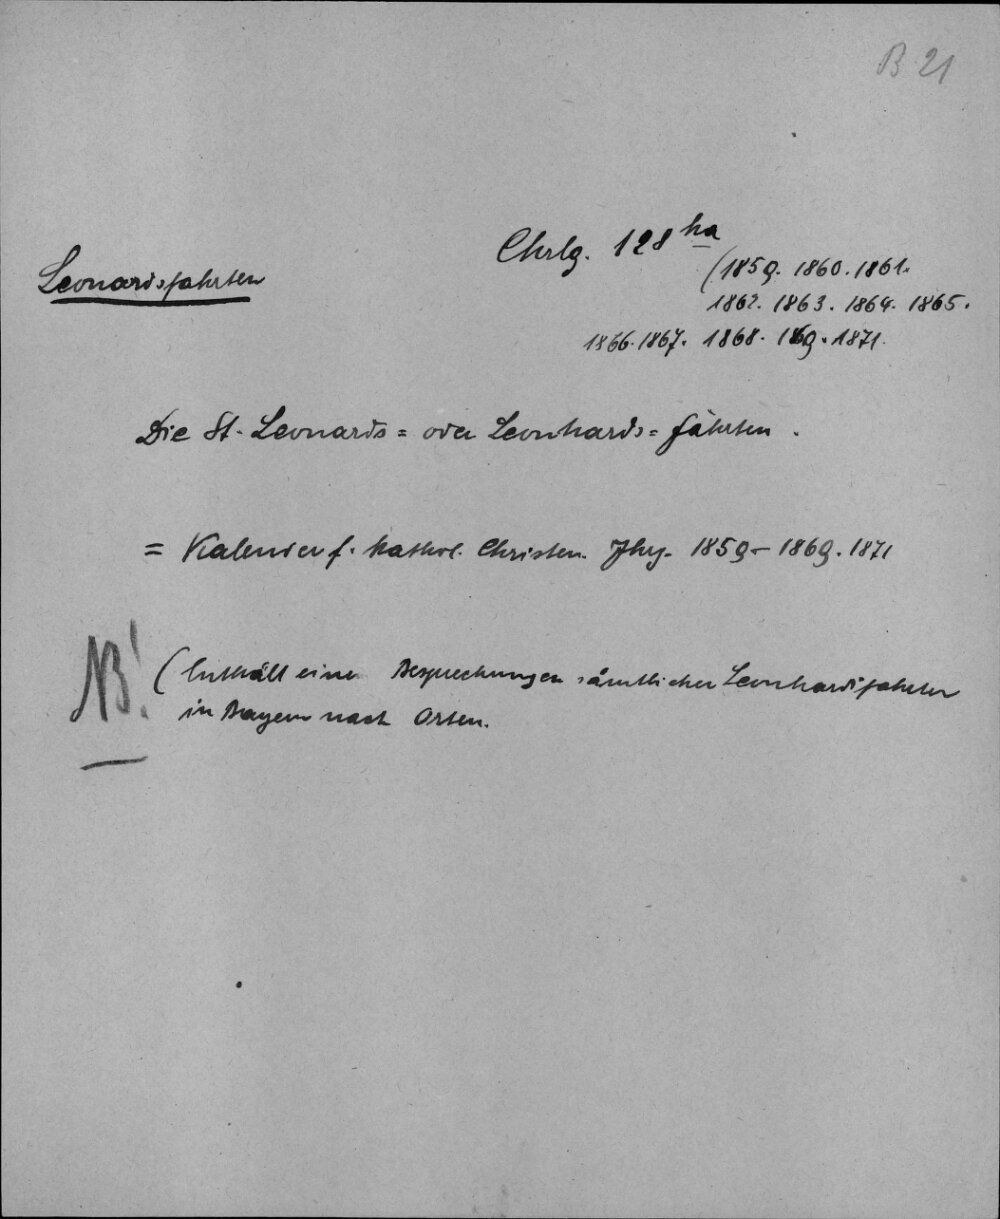 B 21
Leonardsfahrten
Chrlg. 128 ha
(1859. 1860. 1861.
1862. 1863. 1864. 1865.
1866. 1867. 1868. 1869. 1871.
Die St. Leonards= oder Leonhards=fährten.
= Kalender f. kathol. Christen. Jhg. 1859–1869. 1871
NB!
(Enthält eine Besprechungen sämtlicher Leonhardsfahrten
in Bayern nach Orten.